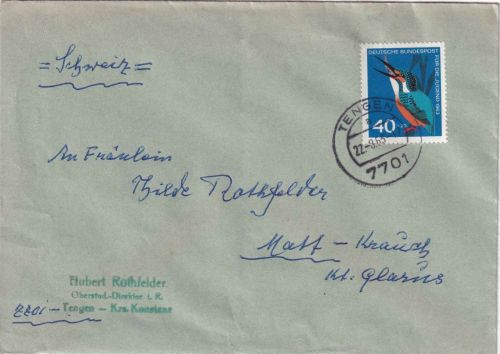 = Schweiz =
DEUTSCHE BUNDESPOST
FÜR DIE JUGEND 1963
40
TENGEN
22.-8.63
7701
An Fräulein
Thilde Rothfelder
Matt - Krauch
Kt. Glarus
Hubert Rothfelder
Oberstud.-Direktor i. R.
7701 - Tengen - Krs. Konstanz